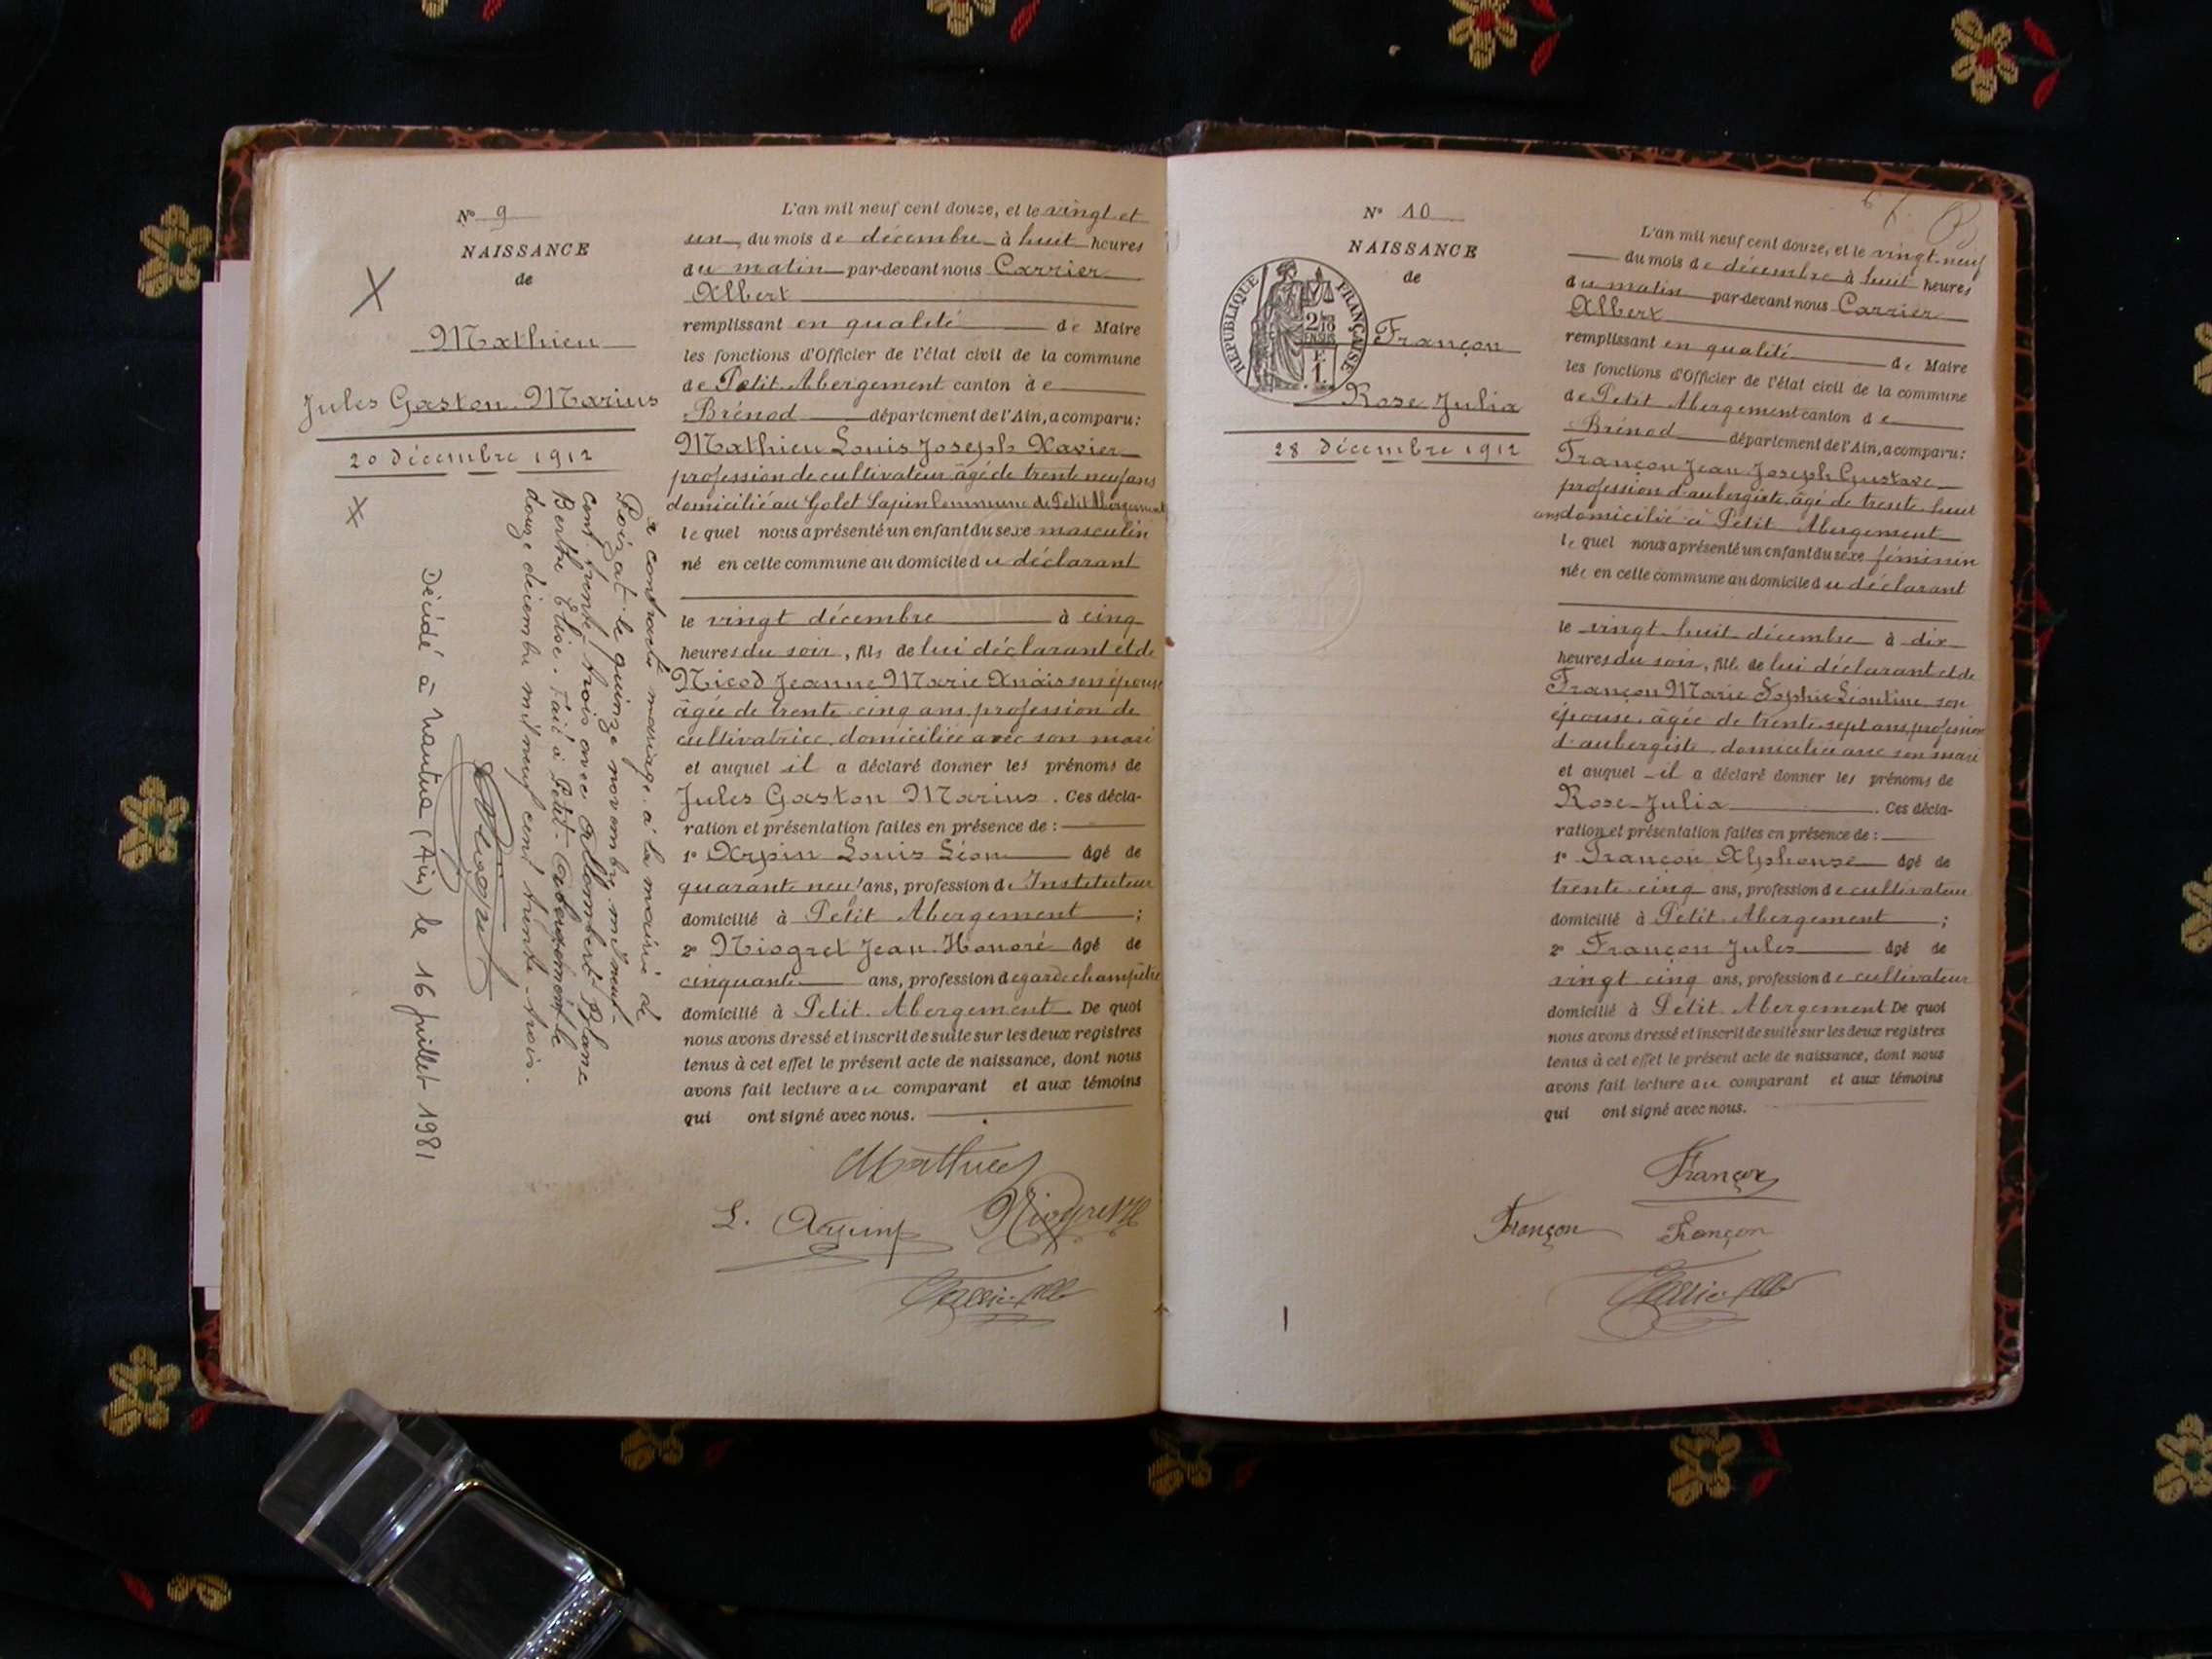 N° 9
NAISSANCE
de
Mathieu
Jules Gaston Marius
20 décembre 1912
a contracté mariage à la mairie de
Poizat le quinze novembre mil neuf
cent trente-trois avec Allombert Blanc
Berthe Elise. Fait à Petit-Abergement le
douze décembre mil neuf cent trente-trois.
Décédé à Nantua (Ain) le 16 juillet 1981
L'an mil neuf cent douze, et le vingt et
un, du mois de décembre à huit heures
du matin par-devant nous Carrier
Albert
remplissant en qualité de Maire
les fonctions d'Officier de l'état civil de la commune
de Petit Abergement canton de
Brénod département de l'Ain, a comparu:
Mathieu Louis Joseph Xavier
profession de cultivateur, âgé de trente neuf ans
domicilié au Golet Sapin Commune de Petit Abergement
lequel nous a présenté un enfant du sexe masculin
né en cette commune au domicile du déclarant
le vingt décembre à cinq
heures du soir, fils de lui déclarant et de
Nicod Jeanne Marie Anais son épouse
âgée de trente cinq ans, profession de
cultivatrice, domiciliée avec son mari
et auquel il a déclaré donner les prénoms de
Jules Gaston Marius. Ces décla-
ration et présentation faites en présence de :
1° Arpin Louis Léon âgé de
quarante neuf ans, profession d'Instituteur
domicilié à Petit Abergement ;
2° Niogret Jean Honoré âgé de
cinquante ans, profession de garde champêtre
domicilié à Petit Abergement. De quoi
nous avons dressé et inscrit de suite sur les deux registres
tenus à cet effet le présent acte de naissance, dont nous
avons fait lecture au comparant et aux témoins
qui ont signé avec nous.
Mathieu
L. Arpin Niogret JH
Carrier Alb
N° 10
NAISSANCE
de
RÉPUBLIQUE FRANÇAISE
Françon
Rose Julia
28 décembre 1912
L'an mil neuf cent douze, et le vingt-neuf
du mois de décembre à huit heures
du matin par-devant nous Carrier
Albert
remplissant en qualité de Maire
les fonctions d'Officier de l'état civil de la commune
de Petit Abergement canton de
Brénod département de l'Ain, a comparu:
Françon Jean Joseph Gustave
profession d'aubergiste, âgé de trente huit
ans domicilié à Petit Abergement
lequel nous a présenté un enfant du sexe féminin
née en cette commune au domicile du déclarant
le vingt huit décembre à dix
heures du soir, fille de lui déclarant et de
Françon Marie Sophie Léontine son
épouse, âgée de trente sept ans, profession
d'aubergiste, domiciliée avec son mari
et auquel il a déclaré donner les prénoms de
Rose Julia. Ces décla-
ration et présentation faites en présence de :
1° Françon Alphonse âgé de
trente cinq ans, profession de cultivateur
domicilié à Petit Abergement ;
2° Françon Jules âgé de
vingt cinq ans, profession de cultivateur
domicilié à Petit Abergement De quoi
nous avons dressé et inscrit de suite sur les deux registres
tenus à cet effet le présent acte de naissance, dont nous
avons fait lecture au comparant et aux témoins
qui ont signé avec nous.
Françon
Françon Françon
Carrier Alb